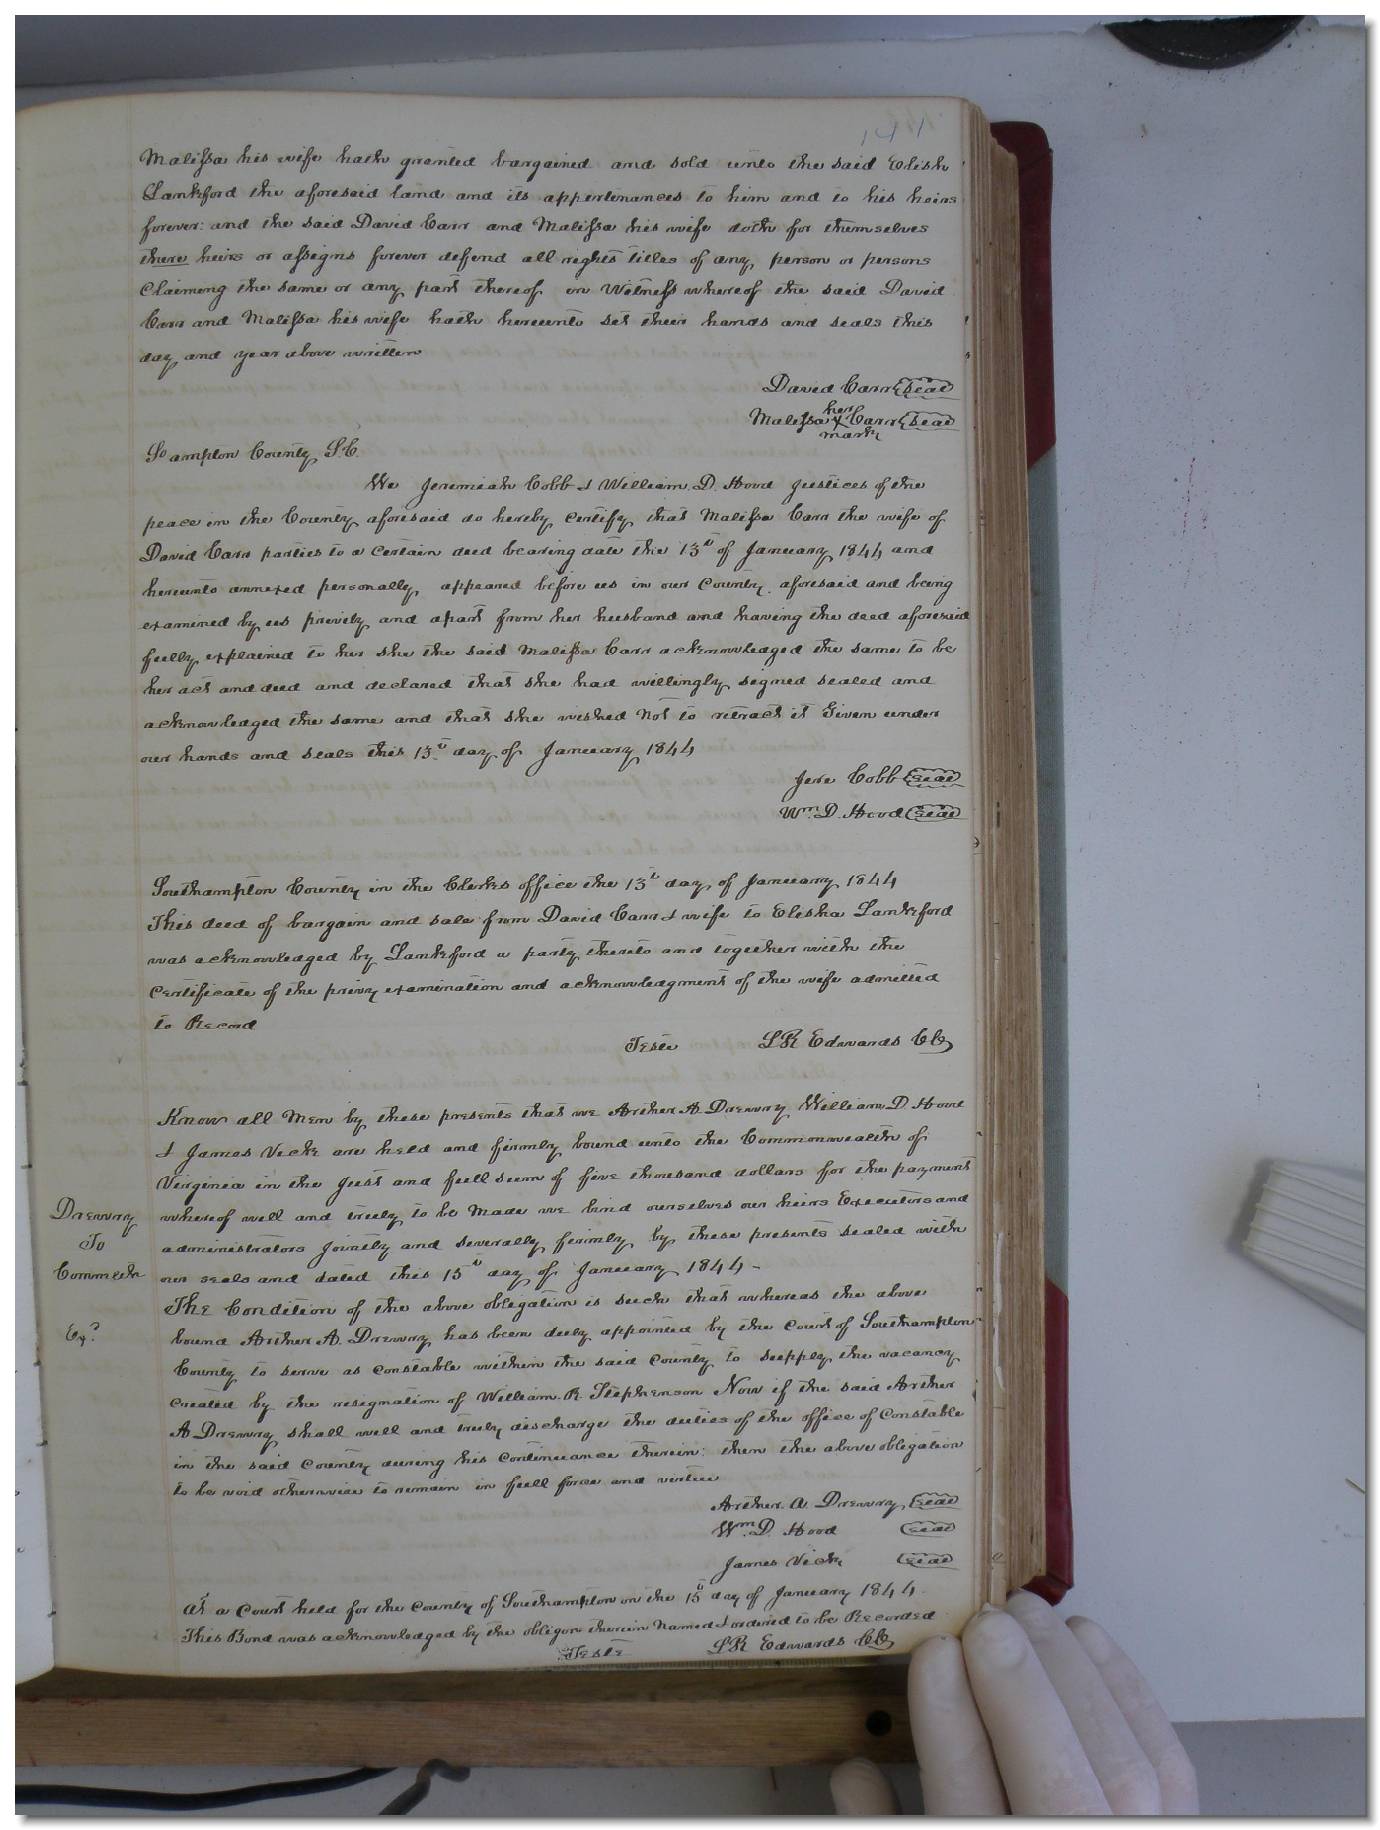 141
Malissa his wife hath granted bargained and sold unto the said Elish
Lankford the aforesaid land and its appertinances to him and to his heirs
forever: and the said David Carr and Malissa his wife doth for themselves
there heirs or assigns forever defend all reghts titles of any person or persons
Claiming the same or any part thereof in Witness whereof the said David
Carr and Malissa his wife hath hereunto set their hands and seals this
day and year above written
David Carr seal
her
Malissa X Carr seal
mark
So ampton County S.C.
We Jeremiah Cobb & William D. Hood Justices of the
peace in the County aforesaid do hereby certify that Malissa Carr the wife of
David Carr parties to a Certain deed bearing date the 13th of January 1844 and
hereunto annexed personally appeared before us in our County aforesaid and being
examined by us privily and apart from her husband and having the deed aforesaid
fully explained to her she the said Malissa Carr acknowledged the same to be
her act and deed and declared that she had willingly signed sealed and
acknowledged the same and that she wished Not to retract it Given under
our hands and seals this 13th day of January 1844
Jere Cobb seal
Wm. D. Hood seal
Southampton County in the Clerks office the 13th day of January 1844
This deed of bargain and sale from David Carr & wife to Elisha Lankford
was acknowledged by Lankford a party thereto and together with the
Certificate of the privy examination and acknowledgment of the wife admitted
to Record
Teste LR Edwards CC
Know all Men by these presents that we Arther A. Drewry William D. Hood
& James Vick are held and firmly bound unto the Commonwealth of
Virginia in the just and full sum of five thousand dollars for the payment
Drewry
To
Commlth
Exd
whereof well and truly to be Made we bind ourselves our heirs Executors and
administrators jointly and severally firmly by these presents sealed with
our seals and dated this 15th day of January 1844 -
The Condition of the above obligation is such that whereas the above
bound Arther A. Drewry has been duly appointed by the Court of Southampton
County to serve as Constable within the said County to supply the vacancy
created by the resignation of William R. Stephenson Now if the said Arther
A Drewry shall well and truly discharge the duties of the office of Constable
in the said County during his Continuance therein: then the above obligation
to be void otherwise to remain in full force and virtue
Arther A. Drewry seal
Wm. D. Hood seal
James Vick seal
At a Court held for the County of Southampton on the 15th day of January 1844
This Bond was acknowledged by the obligors therein Named & ordered to be Recorded
Teste LR Edwards CC